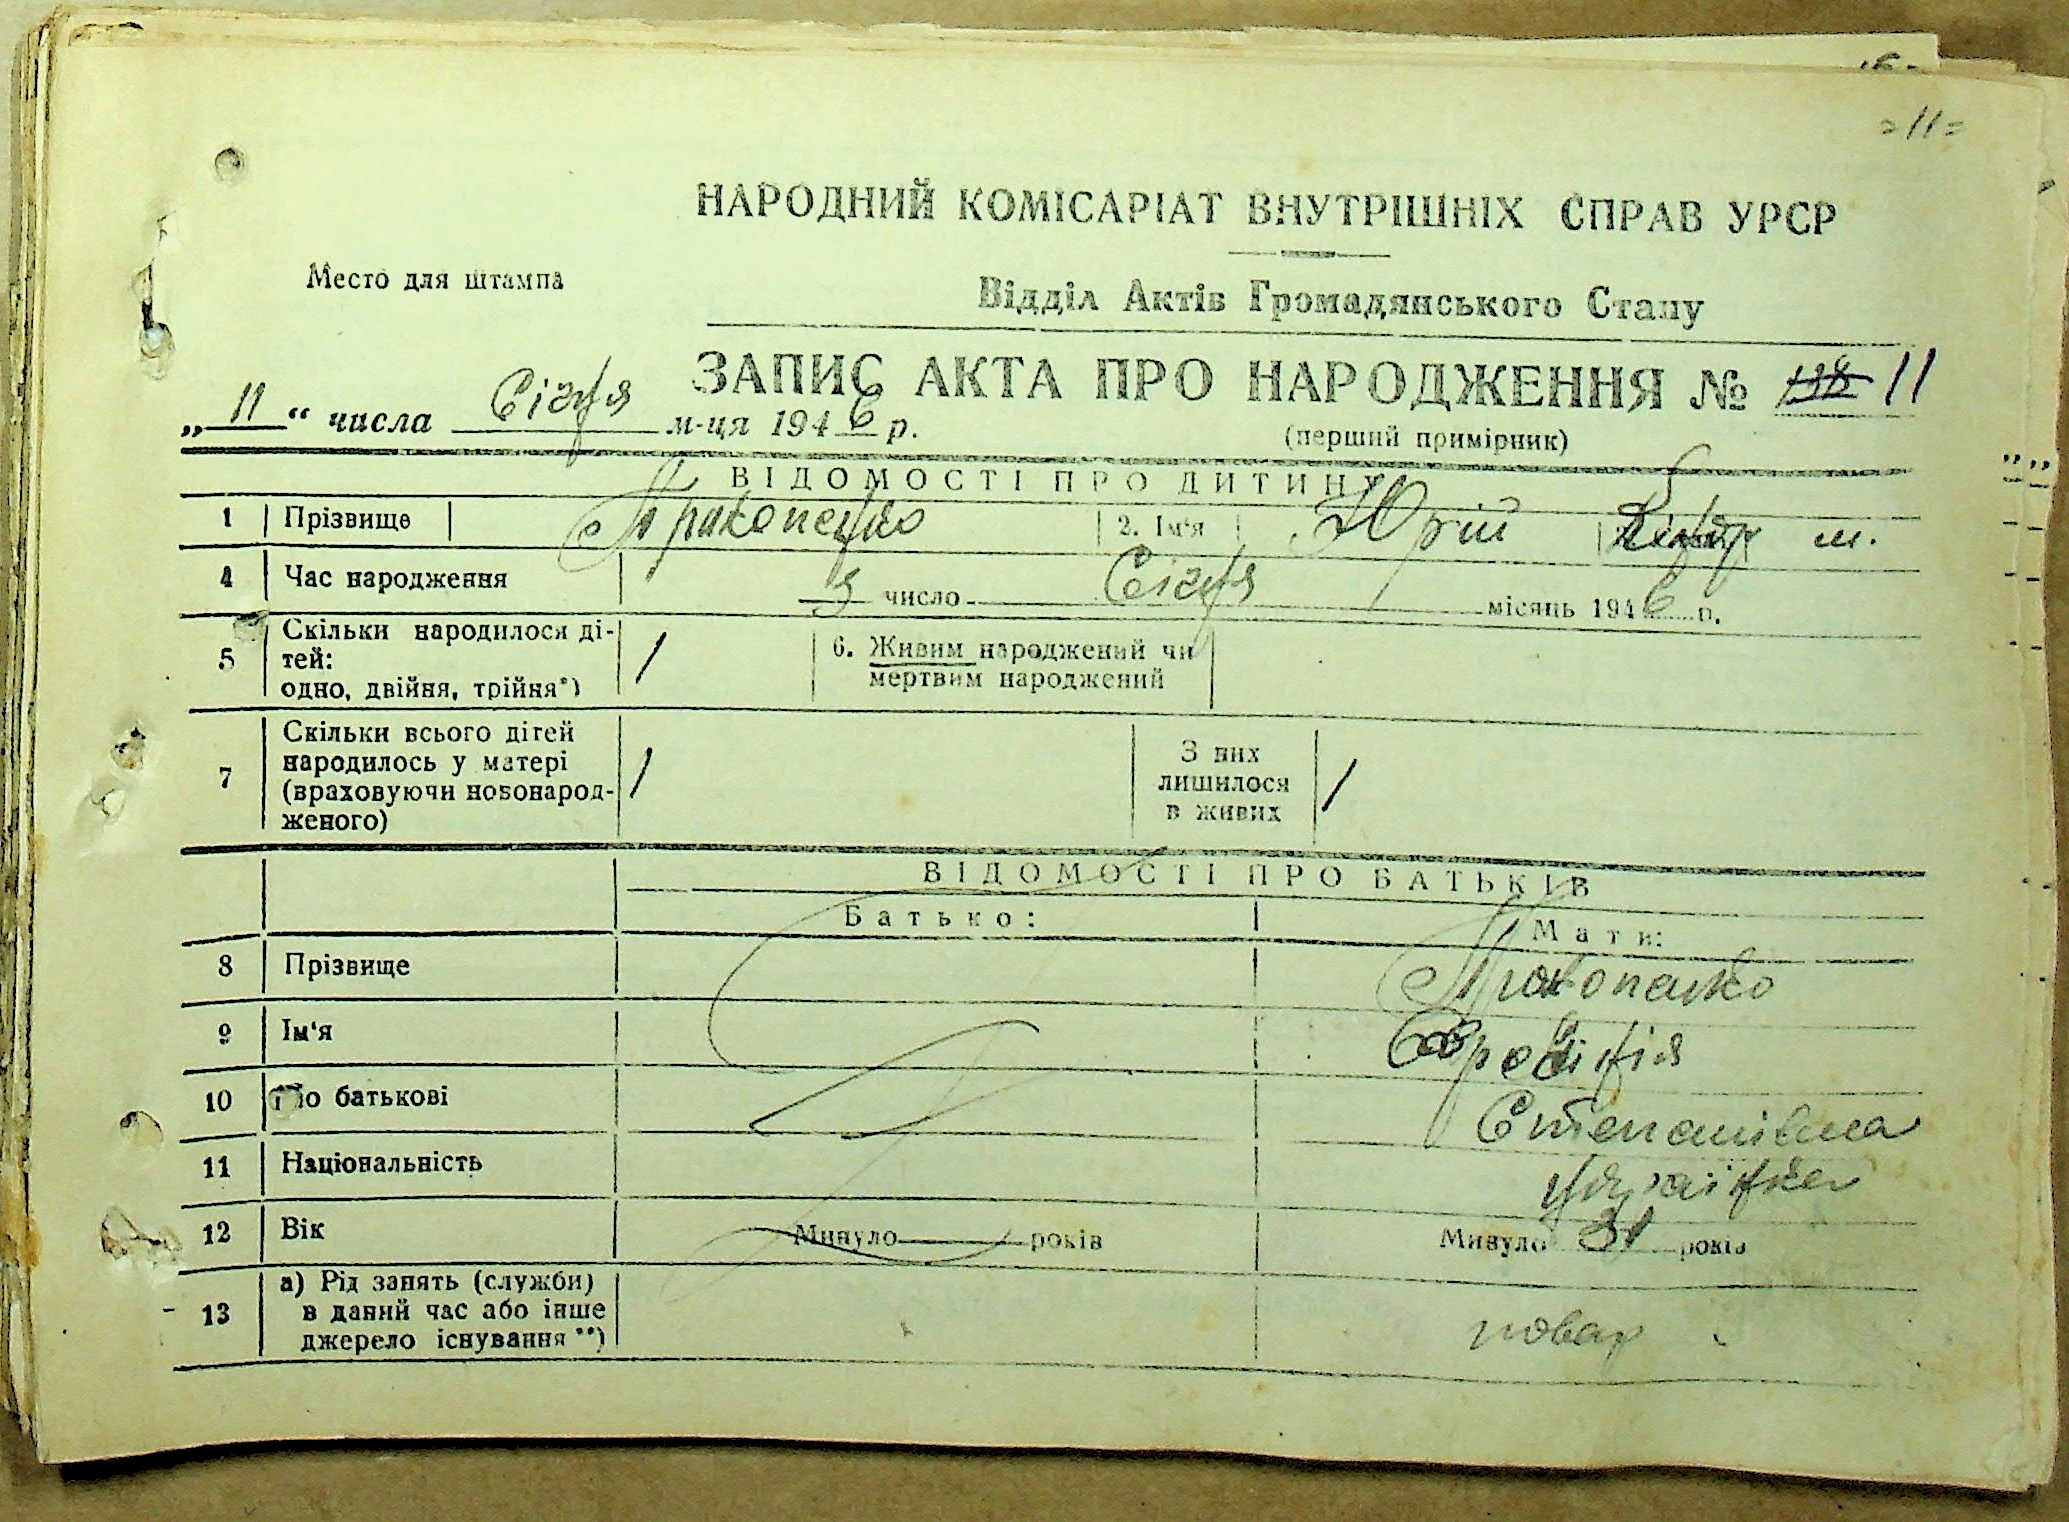 =11=
НАРОДНИЙ КОМІСАРІАТ ВНУТРІШНІХ СПРАВ УРСР
Место для штампа
Відділ Актів Громадянського Стану
ЗАПИС АКТА ПРО НАРОДЖЕННЯ № 118 11
„ 11 “ числа Січня м-ця 1946 р.
(перший примірник)
ВІДОМОСТІ ПРО ДИТИНУ
1 Прізвище Прокопенко 2. Ім'я Юрій м.
4 Час народження 3 число Січня місяць 1946 р.
5 Скільки народилося ді-
тей:
одно, двійня, трійня*) 1
6. Живим народжений чи
мертвим народжений
7 Скільки всього дітей
народилось у матері
(враховуючи новонарод-
женого) 1
З них
лишилося
в живих 1
ВІДОМОСТІ ПРО БАТЬКІВ
Батько: Мати:
8 Прізвище Прокопенко
9 Ім'я
10 По батькові Степанівна
11 Національність українка
12 Вік Минуло років Минуло 31 років
13 а) Рід занять (служби)
в даний час або інше
джерело існування **) повар